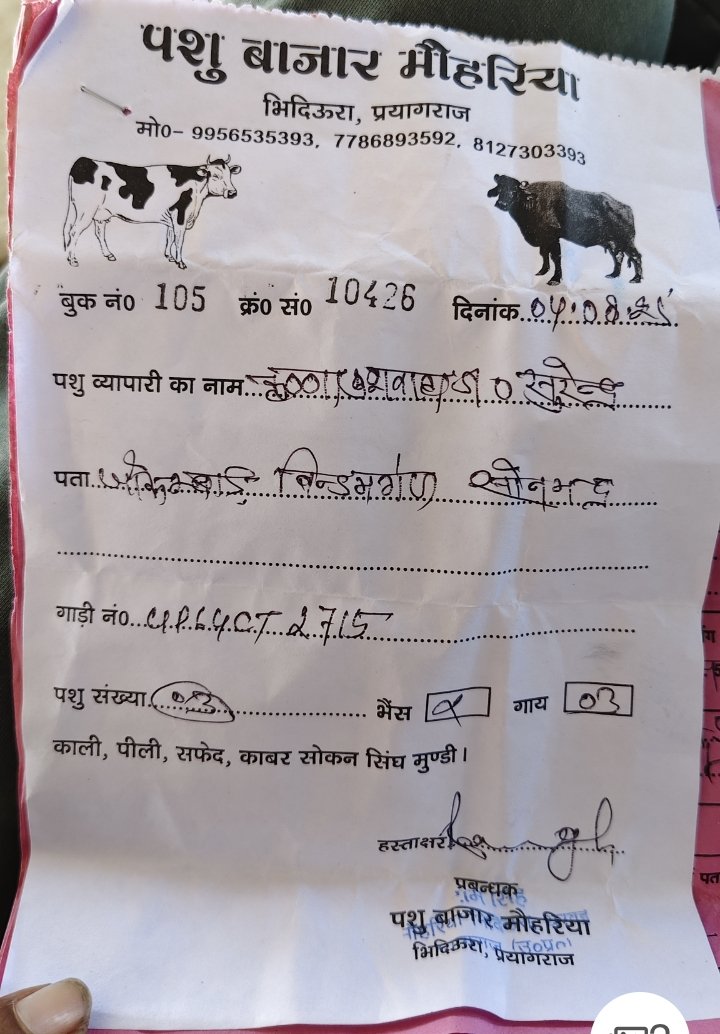 पशु बाजार मौहरिया
भिदिऊरा, प्रयागराज
मो0- 9956535393, 7786893592, 8127303393
बुक नं0 105 क्रं0 सं0 10426 दिनांक 04.08.25
पशु व्यापारी का नाम
पता सोनभद्र
गाड़ी नं0 UP64CT 2715
पशु संख्या 03 भैंस गाय 03
काली, पीली, सफेद, काबर सोकन सिंघ मुण्डी।
हस्ताक्षर
प्रबन्धक
पशु बाजार मौहरिया
भिदिऊरा, प्रयागराज